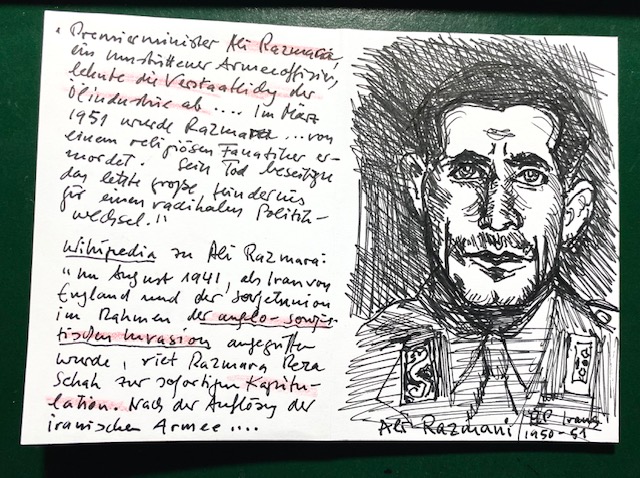 " Premierminister Ali Razmara,
ein umstrittener Armeeoffizier,
lehnte die Verstaatlichg der
Ölindustrie ab .... Im März
1951 wurde Razmara ... von
einem religiösen Fanatiker er-
mordet. Sein Tod beseitigte
das letzte große Hindernis
für einen radikalen Politik-
wechsel."
Wikipedia zu Ali Razmara:
"Im August 1941, als Iran von
England und der Sowjetunion
im Rahmen der anglo-sowje-
tischen Invasion angegriffen
wurde, riet Razmara Reza
Schah zur sofortigen Kapitu-
lation. Nach der Auflösg der
iranischen Armee ....
Ali Razmani / MP Irans
1950-51